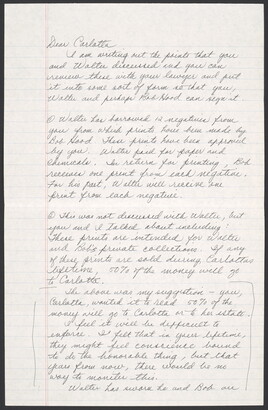 Dear Carlotta,
I am writing out the points that you
and Walter discussed and you can
review these with your lawyer and put
it into some sort of form so that you,
Walter and perhaps Bob Hood can sign it.
① Walter has borrowed 12 negatives from
you from which prints have been made by
Bob Hood. These prints have been approved
by you. Walter paid for paper and
chemicals. In return for printing, Bob
receives one print from each negative.
For his part, Walter will receive one
print from each negative.
② This was not discussed with Walter, but
you and I talked about including:
These prints are intended for Walter
and Bob's private collections. If any
of these prints are sold during Carlotta's
lifetime, 50% of the money will go
to Carlotta.
The above was my suggestion - you,
Carlotta, wanted it to read 50% of the
money will go to Carlotta or to her estate.
I feel it will be difficult to
enforce. I felt that in your lifetime,
they might feel conscience bound
to do the honorable thing, but that
years from now, there would be no
way to monitor this.
Walter has sworn he and Bob are